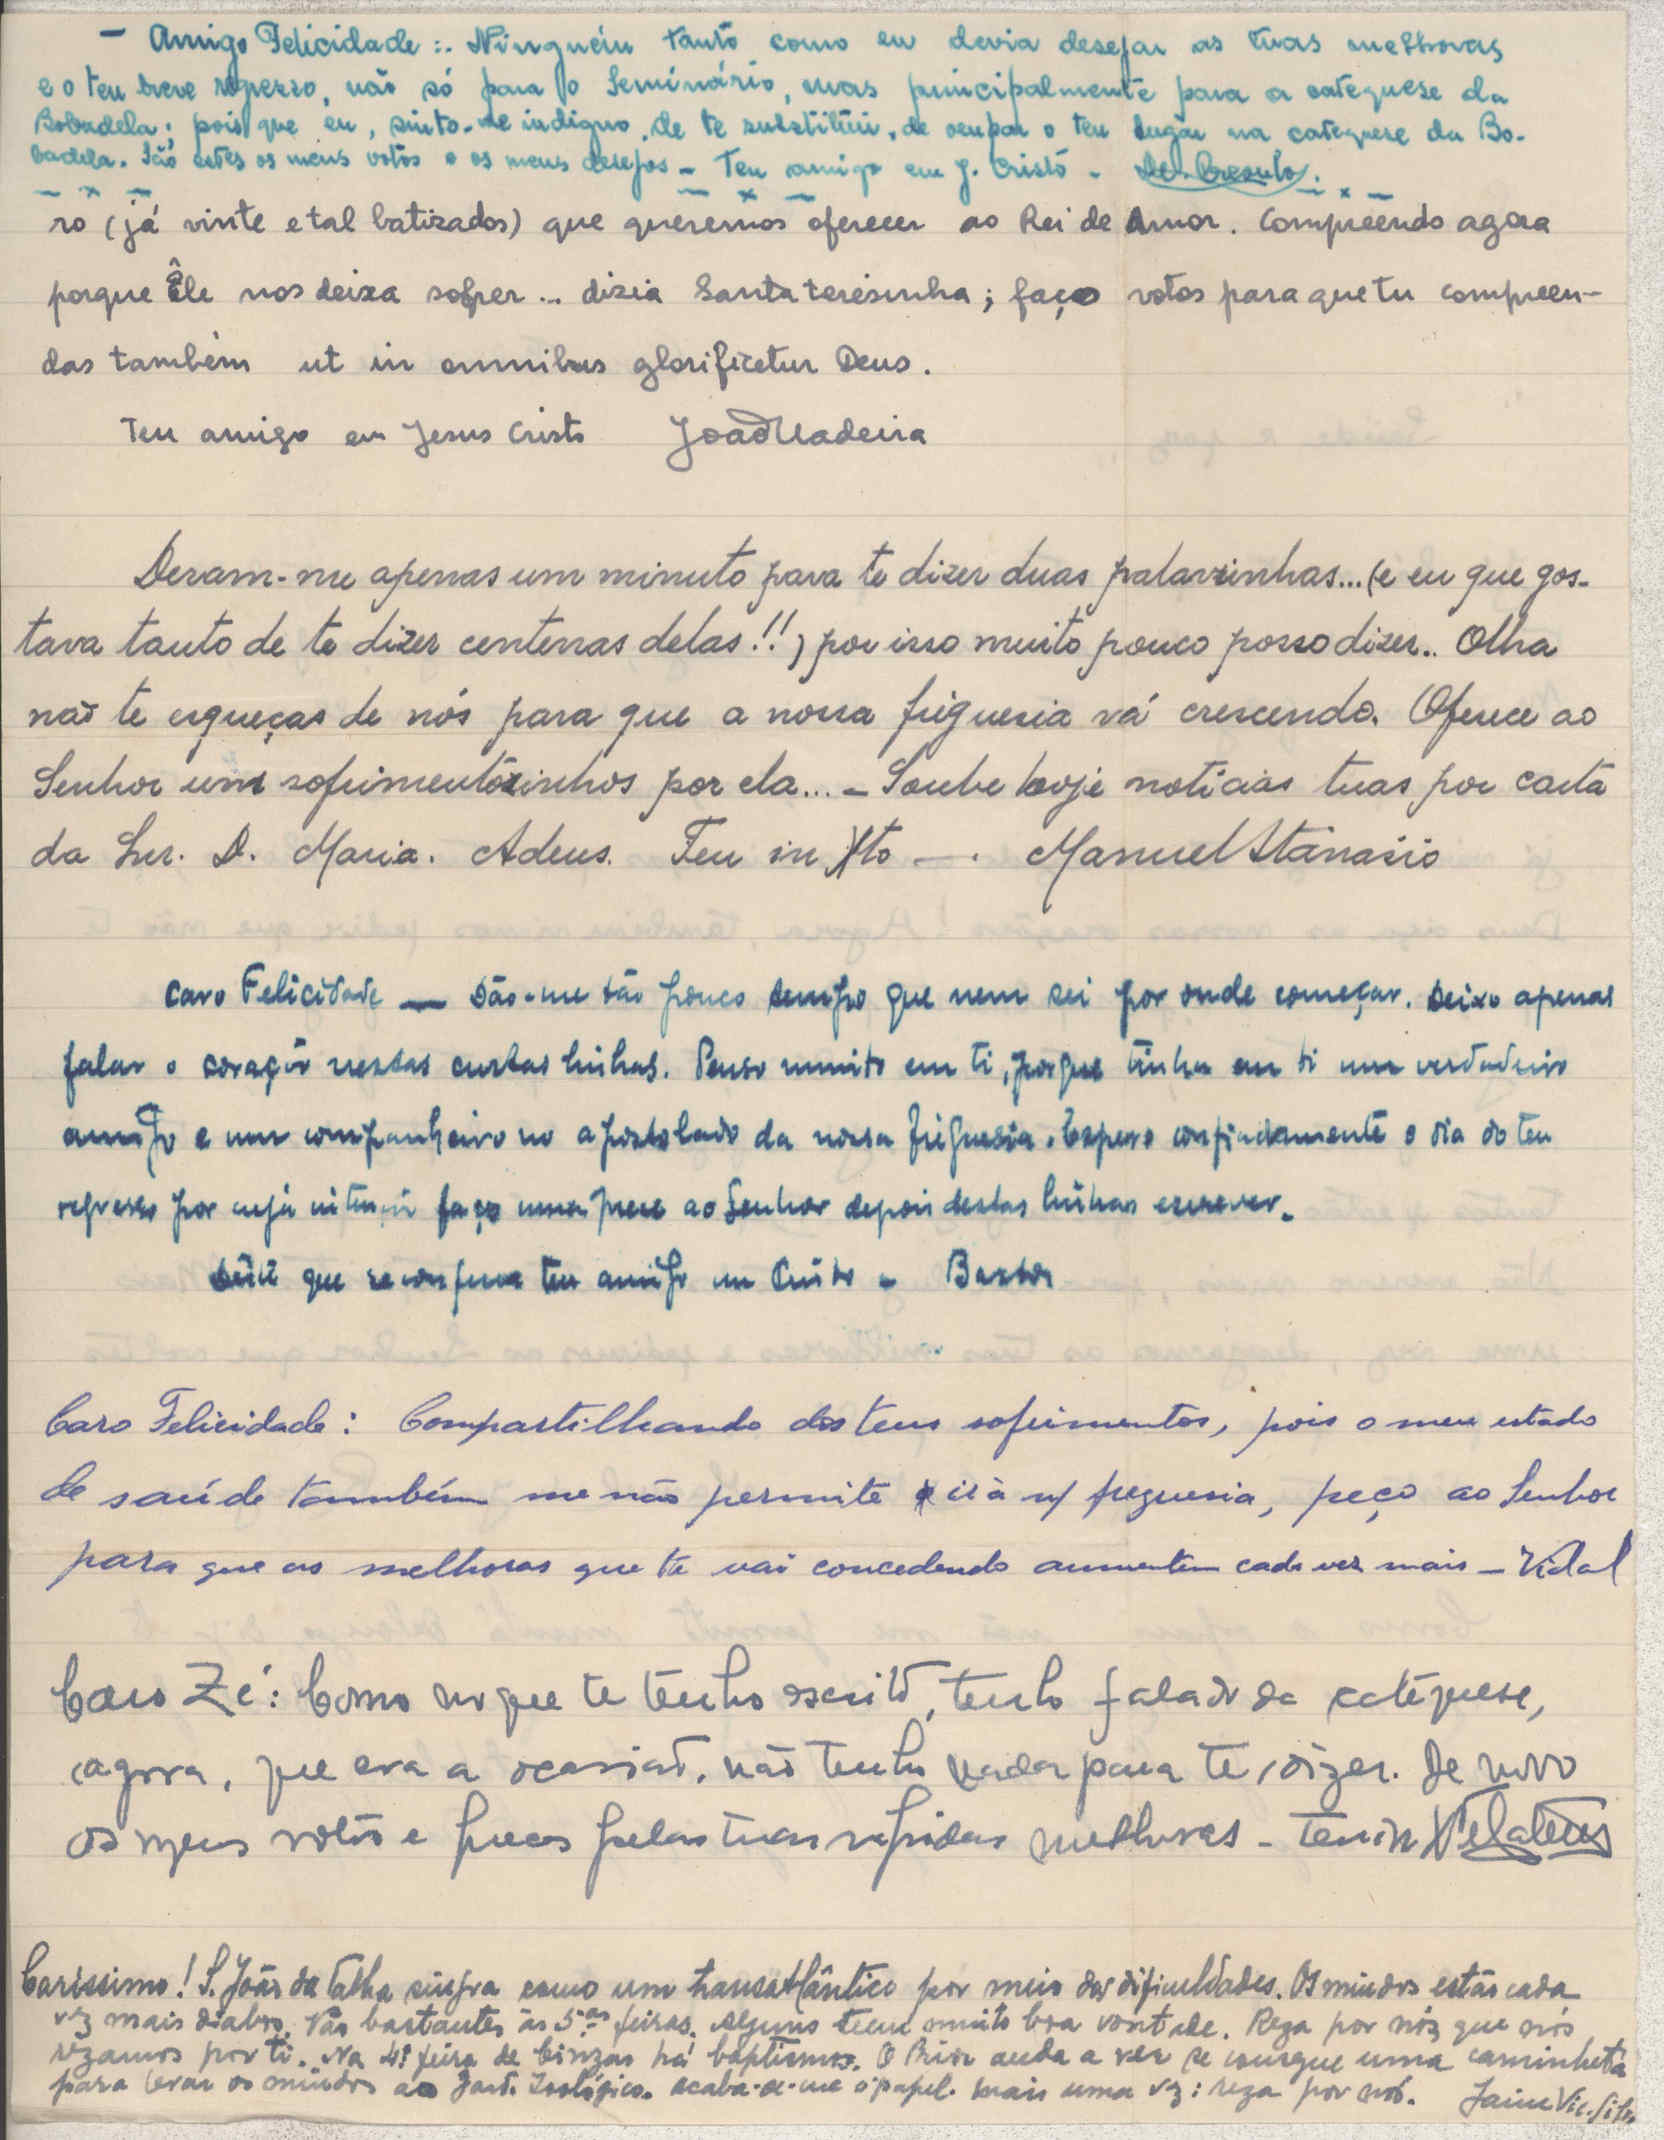 - Amigo Felicidade:. Ninguém tanto como eu devia desejar as tuas melhoras
e o teu breve regresso, não só para o Seminário, mas principalmente para a catequese da
Bobadela; pois que eu, sinto-me indigno, de te substituir, de ocupar o teu lugar na catequese da Bo-
badela. São estes os meus votos e os meus desejos - Teu amigo em J. Cristo -
ro (já vinte e tal batizados) que queremos oferecer ao Rei de Amor. Compreendo agora
porque Êle nos deixa sofrer... dizia Santa teresinha; faço votos para que tu compreen-
das também ut in omnibus glorificetur Deus.
Teu amigo em Jesus Cristo João Madeira
Deram-me apenas um minuto para te dizer duas palavrinhas... (e eu que gos-
tava tanto de te dizer centenas delas!!) por isso muito pouco posso dizer.. Olha
não te esqueças de nós para que a nossa freguesia vá crescendo. Oferece ao
Senhor uns sofrimentòzinhos por ela... - Soube hoje notícias tuas por carta
da Snr. D. Maria. Adeus. Teu in Xto -. Manuel Atanásio
Caro Felicidade - Dão-me tão pouco tempo que nem sei por onde começar. Deixo apenas
falar o coração nestas curtas linhas. Penso muito em ti, porque tinha em ti um verdadeiro
amigo e um companheiro no apostolado da nossa freguesia. Espero confiadamente o dia do teu
regresso por cuja intenção faço uma prece ao Senhor depois destas linhas escrever.
que se confessa teu amigo em Cristo - Bastos
Caro Felicidade: Compartilhando dos teus sofrimentos, pois o meu estado
de saúde também me não permite ir à n/ freguesia, peço ao Senhor
para que as melhoras que te vai concedendo aumentem cada vez mais - Vidal
Caro Zé: Como no que te tenho escrito, tenho falado da catequese,
agora, que era a ocasião, não tenho nada para te dizer. De novo
os meus votos e preces pelas tuas rápidas melhoras - teu in X
Caríssimo! S. João da Talha singra como um transatlântico por meio das dificuldades. Os miudos estão cada
vez mais diabos. Vão bastantes às 5.as feiras. Alguns teem muito boa vontade. Reza por nós que nós
rezamos por ti. Na 4ª feira de Cinzas há baptismos. O Prior anda a ver se consegue uma caminheta
para levar os miudos ao Jard. Zoológico. Acaba-se-me o papel. Mais uma vez: reza por nós. Jaime Vic. Silva